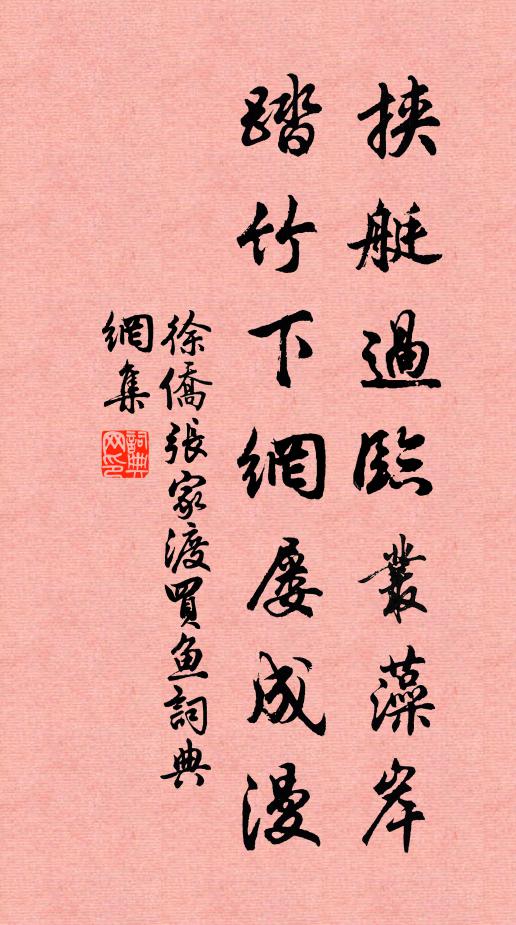 挾艇過臨叢藻岸
踏竹下網屡成漫
徐僑張家渡買魚詞典
網集
詞典
網印